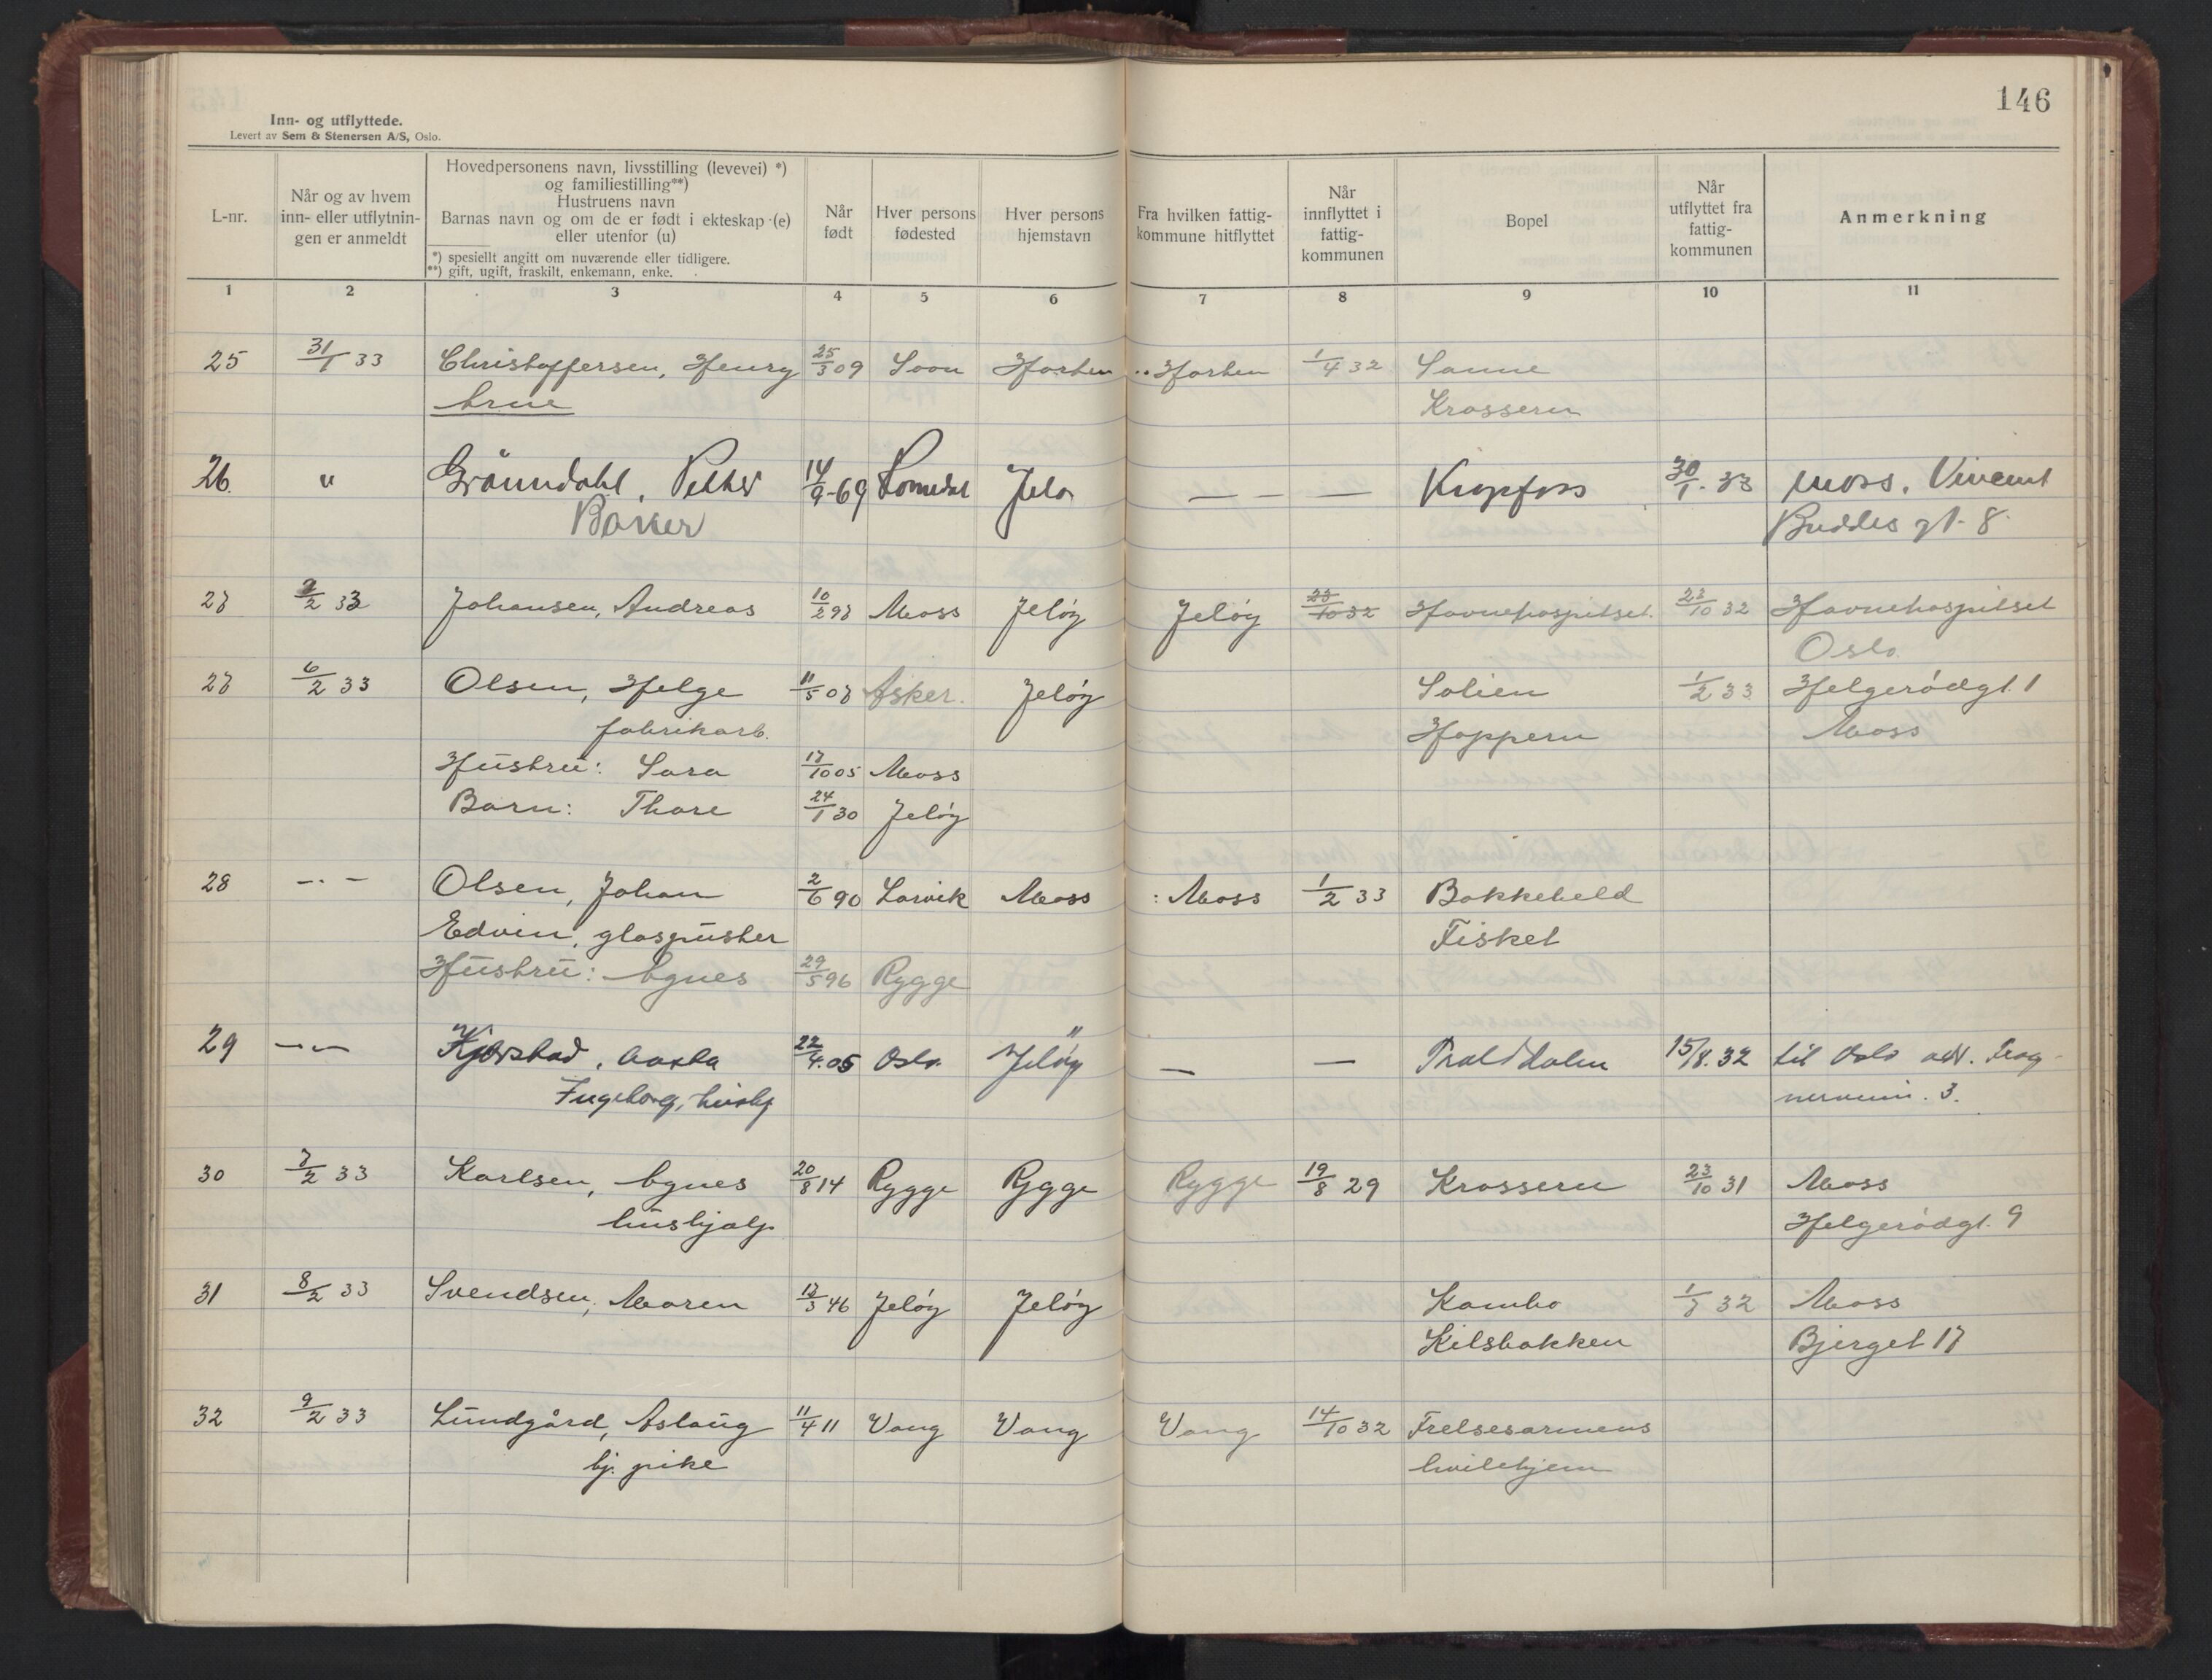 146
Inn- og utflyttede.
Levert av Sem & Stenersen A/S, Oslo.
L-nr.
Når og av hvem
inn- eller utflytnin-
gen er anmeldt
Hovedpersonens navn, livsstilling (levevei) *)
og familiestilling**)
Hustruens navn
Barnas navn og om de er født i ekteskap (e)
eller utenfor (u)
*) spesiellt angitt om nuværende eller tidligere.
**) gift, ugift, fraskilt, enkemann, enke.
Når
født
Hver persons
fødested
Hver persons
hjemstavn
Fra hvilken fattig-
kommune hitflyttet
Når
innflyttet i
fattig-
kommunen
Bopel
Når
utflyttet fra
fattig-
kommunen
Anmerkning
1 2 3 4 5 6 7 8 9 10 11
25 31/1 33 Christoffersen, Henry 25/3 09 Soon Horten Horten 1/4 32 Sanne
Arne Krossern
26. " Grönndahl, Petter 14/9-69 Romedal Jelø — — — Kippfoss 30/1-33 Moss. Vincent
Baker Buddes gt. 8.
27 2/2 33 Johansen, Andreas 10/2 97 Moss Jeløy Jeløy 23/10 32 Havnehospitset. 23/10 32 Havnehospitset
Oslo.
27 6/2 33 Olsen, Helge 11/5 07 Asker. Jeløy Solien 1/2 33 Helgerødgt. 1
fabrikarb. Hoppern Moss
Hustru: Sara 17/10 05 Moss
Barn: Thore 24/1 30 Jeløy
28 -.- Olsen, Johan 2/6 90 Larvik Moss : Moss 1/2 33 Bakkeheld
Edvin, glaspuster Fisket
Hustru: Agnes 29/5 96 Rygge
29 -"- Kjørstad, Aasta 22/4.05 Oslo Jeløy — — Tralddalen 15/8.32 til Oslo adr. Frog-
Ingeborg, hushj nerveien. 3.
30 7/2 33 Karlsen, Agnes 20/8 14 Rygge Rygge Rygge 19/8 29 Krossern 23/10 31 Moss
hushjalp. Helgerødgt. 9
31 8/2 33 Svendsen, Maren 12/3 46 Jeløy Jeløy Kambo 1/7 32 Moss
Kilsbakken Bjerget 17
32 9/2 33 Lundgård, Aslaug 11/4 11 Vang Vang Vang 14/10 32 Frelsesarmens
hj. pike hvilehjem